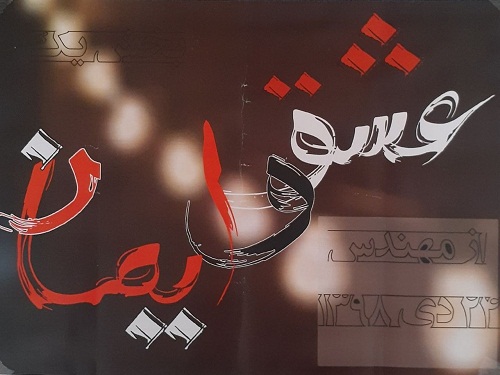 یک
عشق و ایمان
از مهندس
۲۴ دی ۱۳۹۸